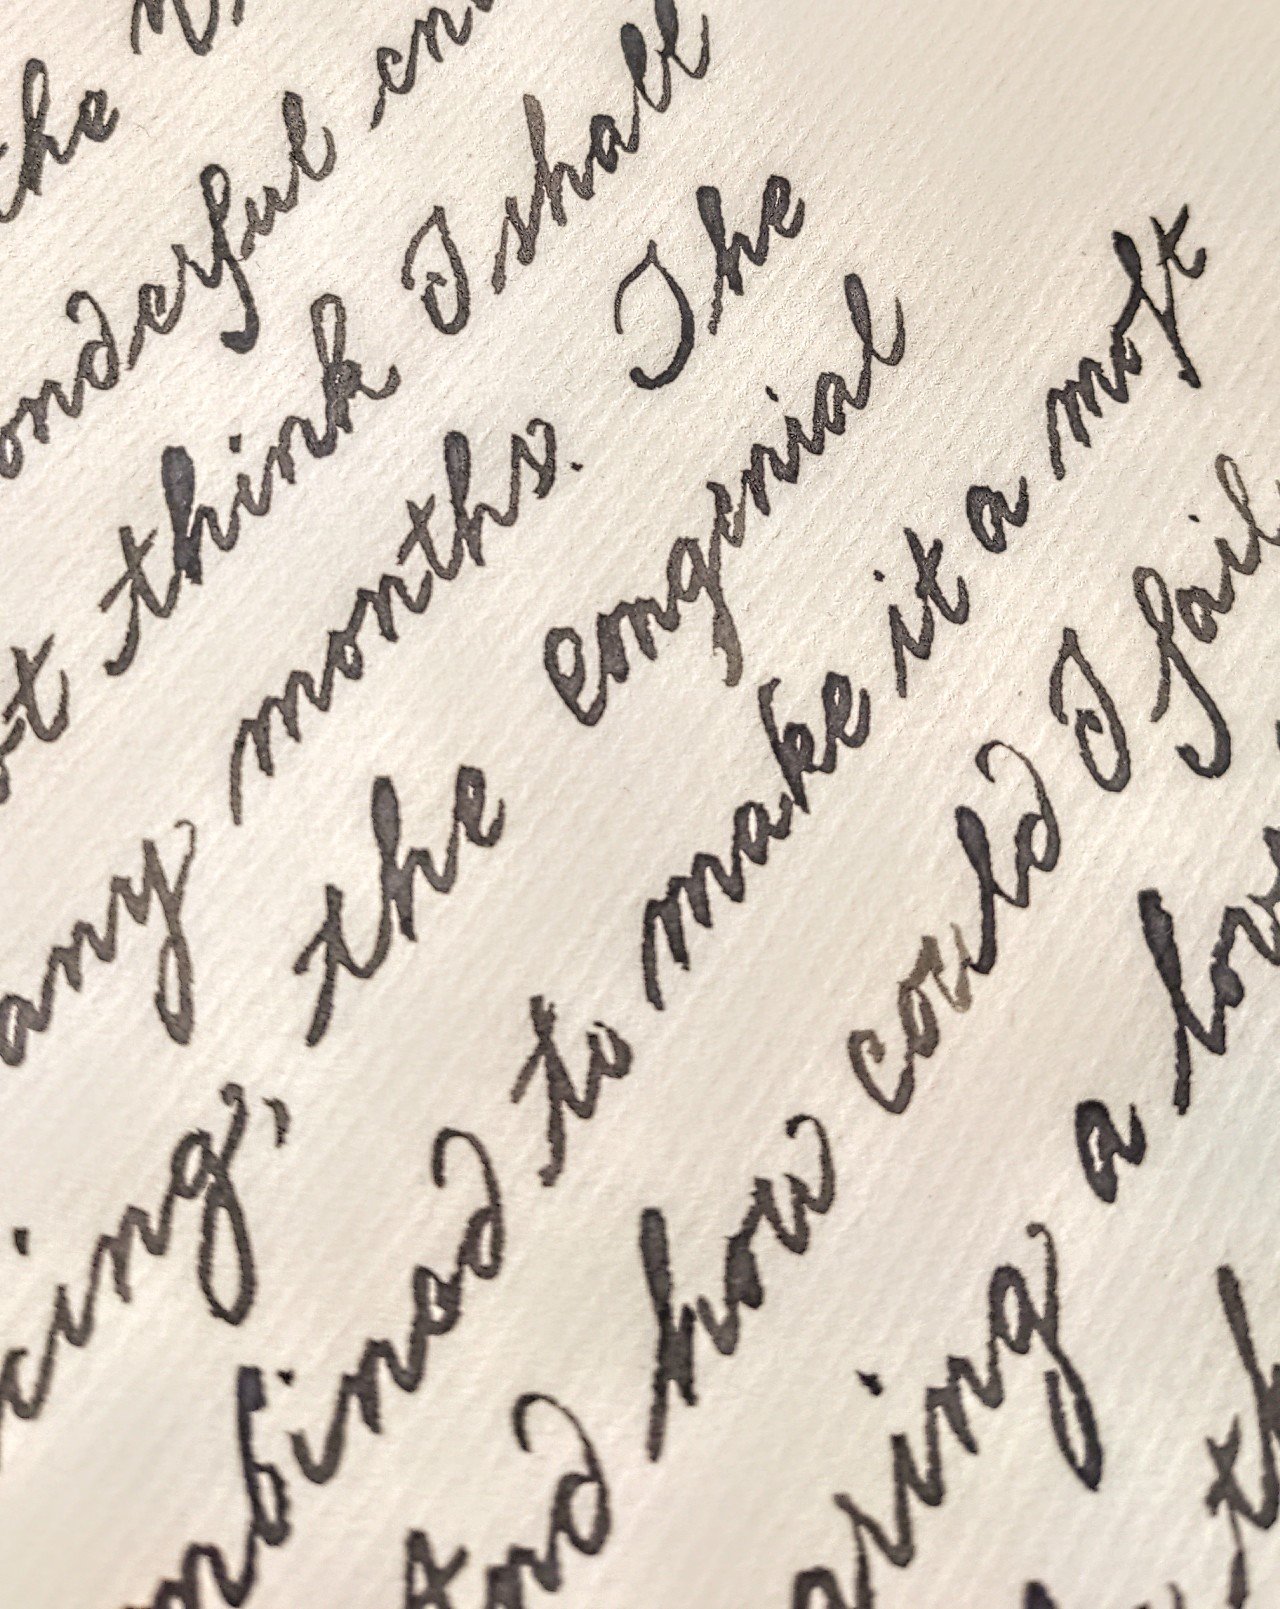 the
onderful en
ot think I shall
any months. The
cing, the congenial
mbined to make it a moſt
And how could I fail
ring a lov
th